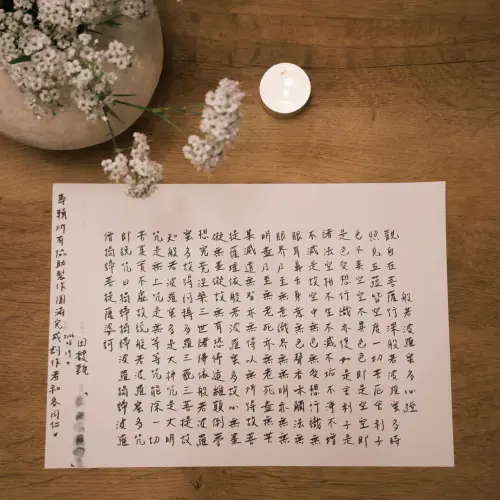 般若波羅蜜多心經
觀自在菩薩行深般若波羅蜜多時
照見五蘊皆空度一切苦厄舍利子
色不異空空不異色色即是空空即
是色受想行識亦復如是舍利子是
諸法空相不生不滅不垢不淨不增
不減是故空中無色無受想行識無
眼耳鼻舌身意無色聲香味觸法無
眼界乃至無意識界無無明亦無無
明盡乃至無老死亦無老死盡無苦
集滅道無智亦無得以無所得故菩
提薩埵依般若波羅蜜多故心無罣
礙無罣礙故無有恐怖遠離顛倒夢
想究竟涅槃三世諸佛依般若波羅
蜜多故得阿耨多羅三藐三菩提故
知般若波羅蜜多是大神咒是大明
咒是無上咒是無等等咒能除一切
苦真實不虛故說般若波羅蜜多咒
即說咒曰揭諦揭諦波羅揭諦波羅
僧揭諦菩提薩婆訶
田馥甄
所有協助製作圓滿完成創作者和同仁